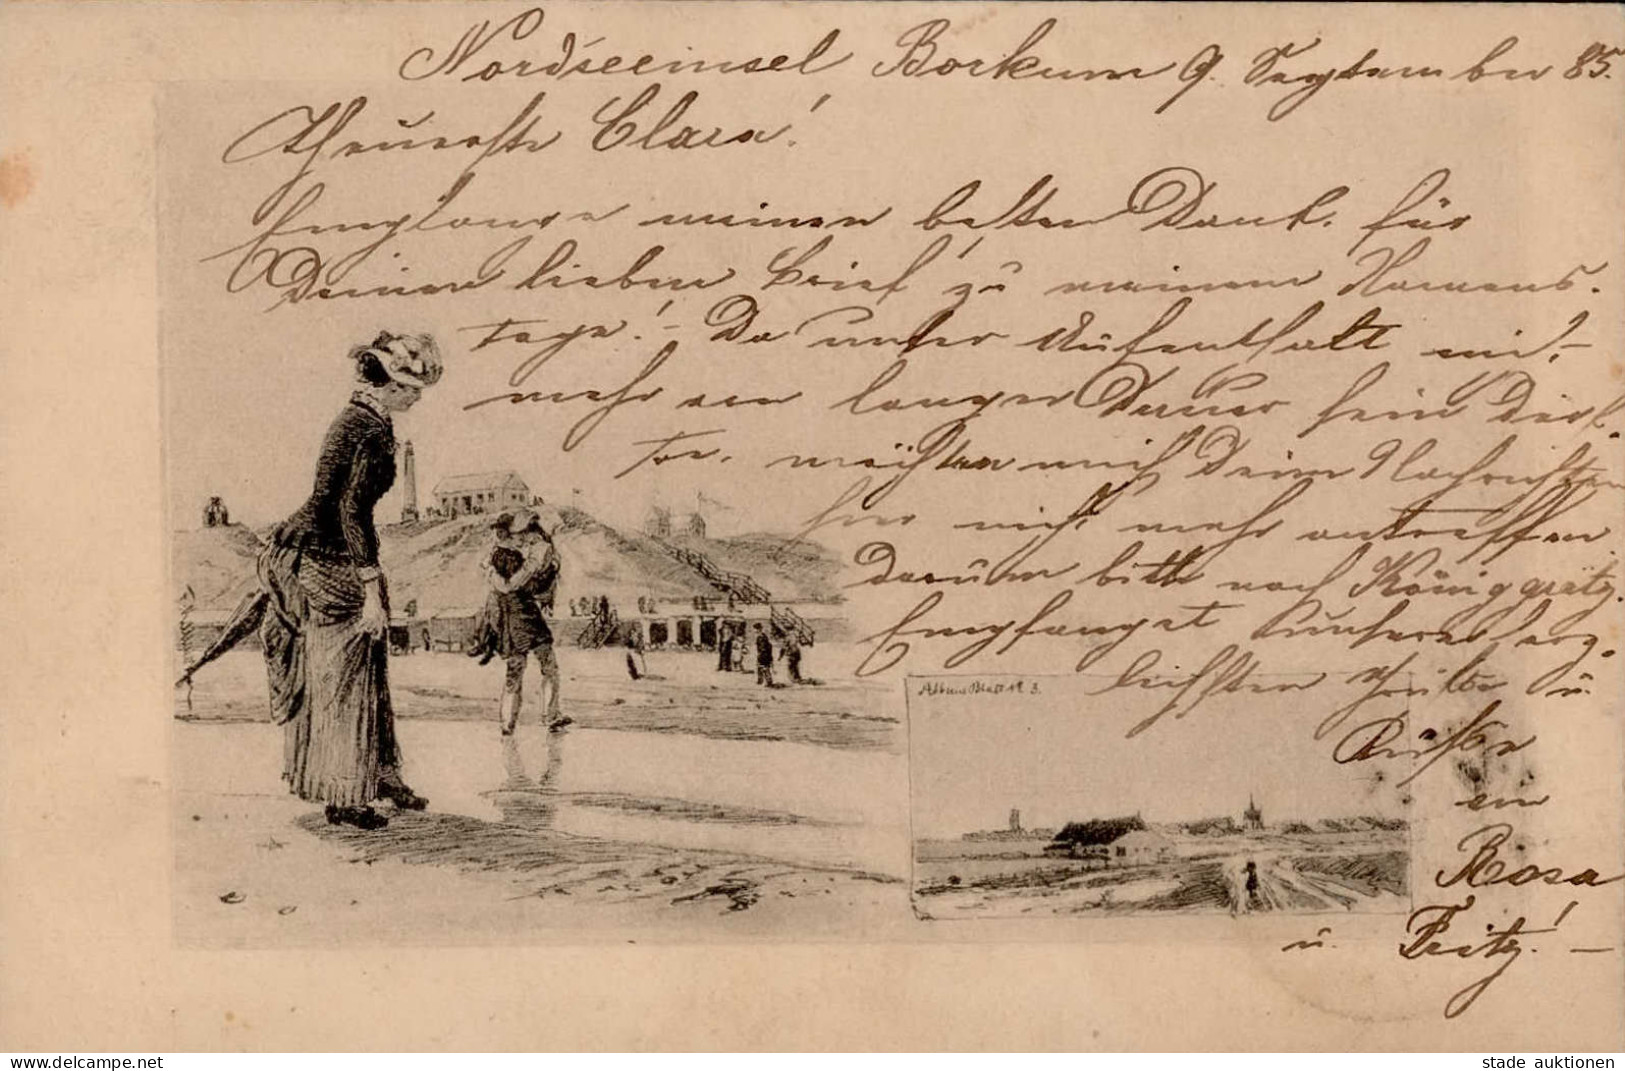 Nordseeinsel Borkum 9. September 85.
Theuerste Clara!
Empfange meinen besten Dank für
Deinen lieben Brief zu meinem Namens-
tage! – Da unser Aufenthalt nicht
mehr von langer Dauer sein dürf-
te, möchten mich Deine Nachrichten
hier nicht mehr antreffen
darum bitte nach Königgrätz.
Empfanget unsere herz-
lichsten Grüße u.
Küsse
Album Blatt No 3.
Rosa
u. Fritz! –
stade auktionen
https://www.delcampe.net